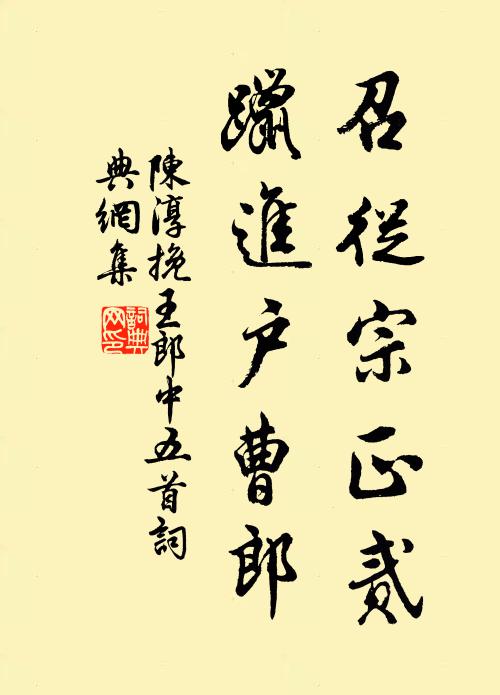 召從宗正貳
躐進戶曹郎
陳淳挽王郎中五首詞
典網集
詞典网印